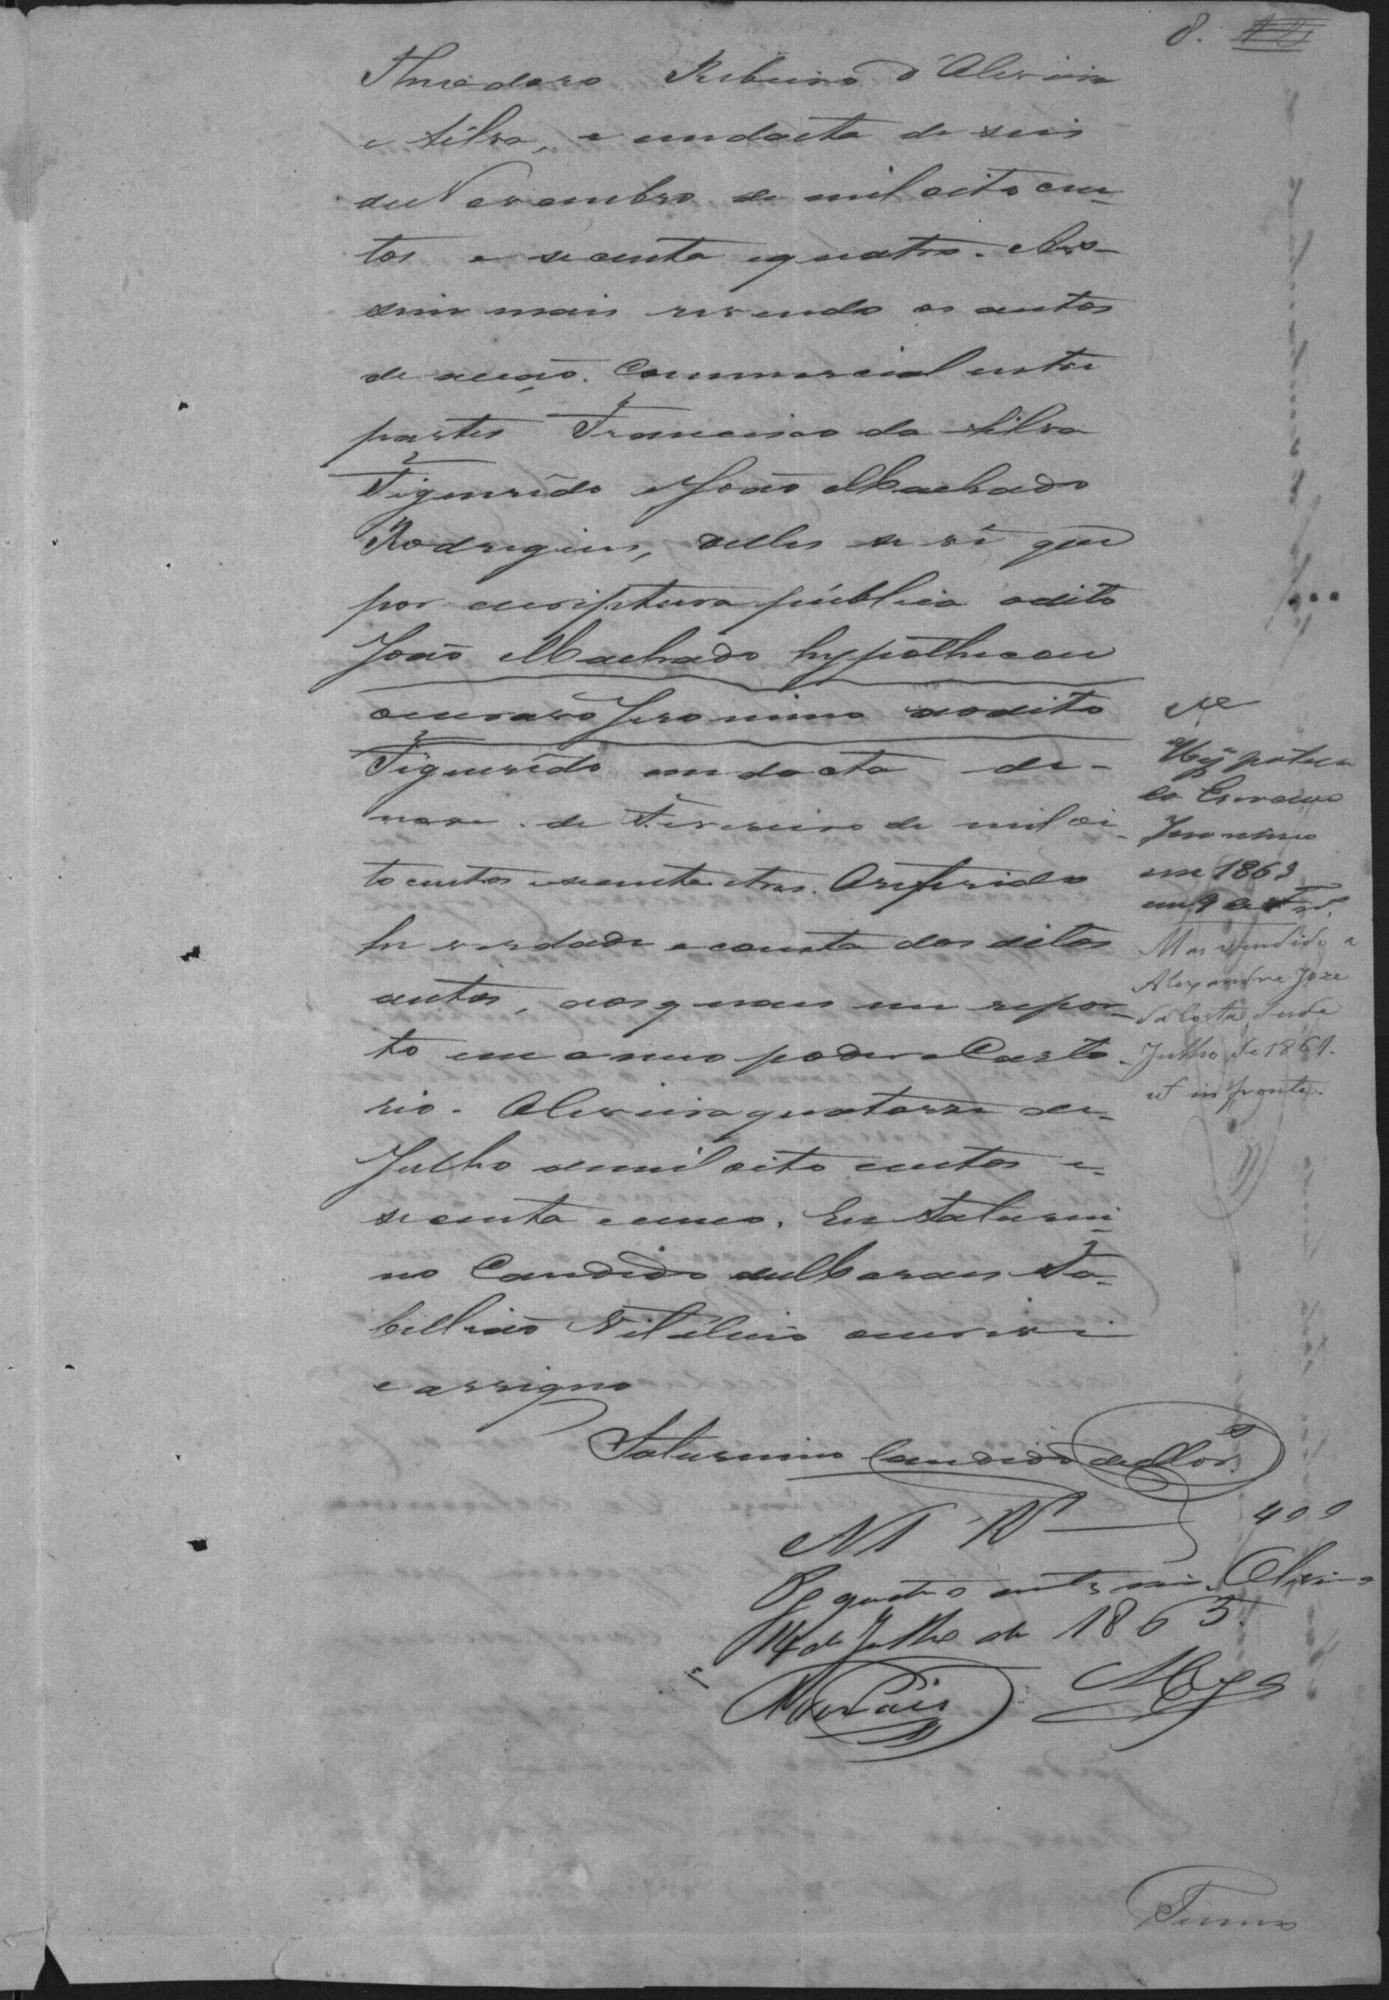 8.
Amadoro Ribeiro d'Oliveira
e Silva, e em dacta de seis
de Novembro de mil oito cen-
tos e secenta e quatro. As-
sim mais revendo os autos
de acção Commercial entre
partes Francisco da Silva
Figuerêdo e João Machado
Rodrigues, delles se vê que
por escriptura pública o dito
João Machado hypothecou
o escravo Jeronimo ao dito
Figuerêdo em dacta de-
nove de Fevereiro de mil oi-
to centos e secenta e tres. O referido
he verdade e consta dos ditos
autos, aos quaes me repor-
to em o meo poder e Carto-
rio. Oliveira quatorze de-
Julho de mil oito centos e-
secenta e cinco. Eu Saturni-
no Candido de Moraes Ta-
bellião Vitalicio escrevi
e assigno
Saturnino Candido de Mor.es
Hypoteca
do Escravo
Jeronimo
em 1863
em 9 de Fev.
Mas vendido a
Alexandre Joze
da Costa desde
Julho de 1861.
ut in fronte.
400
Pg quatro centos reis. Oliveira
14 de Julho de 1865.
Moraes